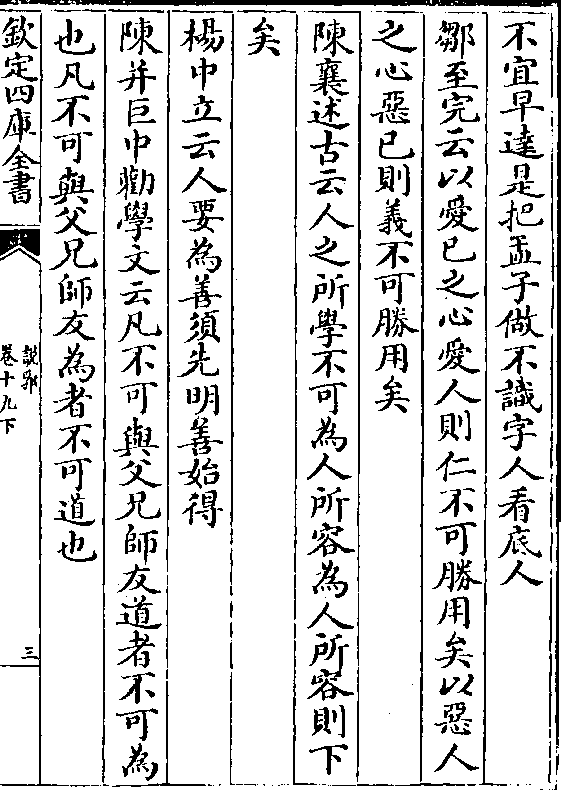 不宜早達是把孟子做不識字人看底人
鄒至完云以愛已之心愛人則仁不可勝用矣以惡人
之心惡已則義不可勝用矣
陳襄述古云人之所學不可為人所容為人所容則下
矣
楊中立云人要為善須先明善始得
陳并巨中勸學文云凡不可與父兄師友道者不可為
也凡不可與父兄師友為者不可道也
欽定四庫全書
說郛
卷十九下
三